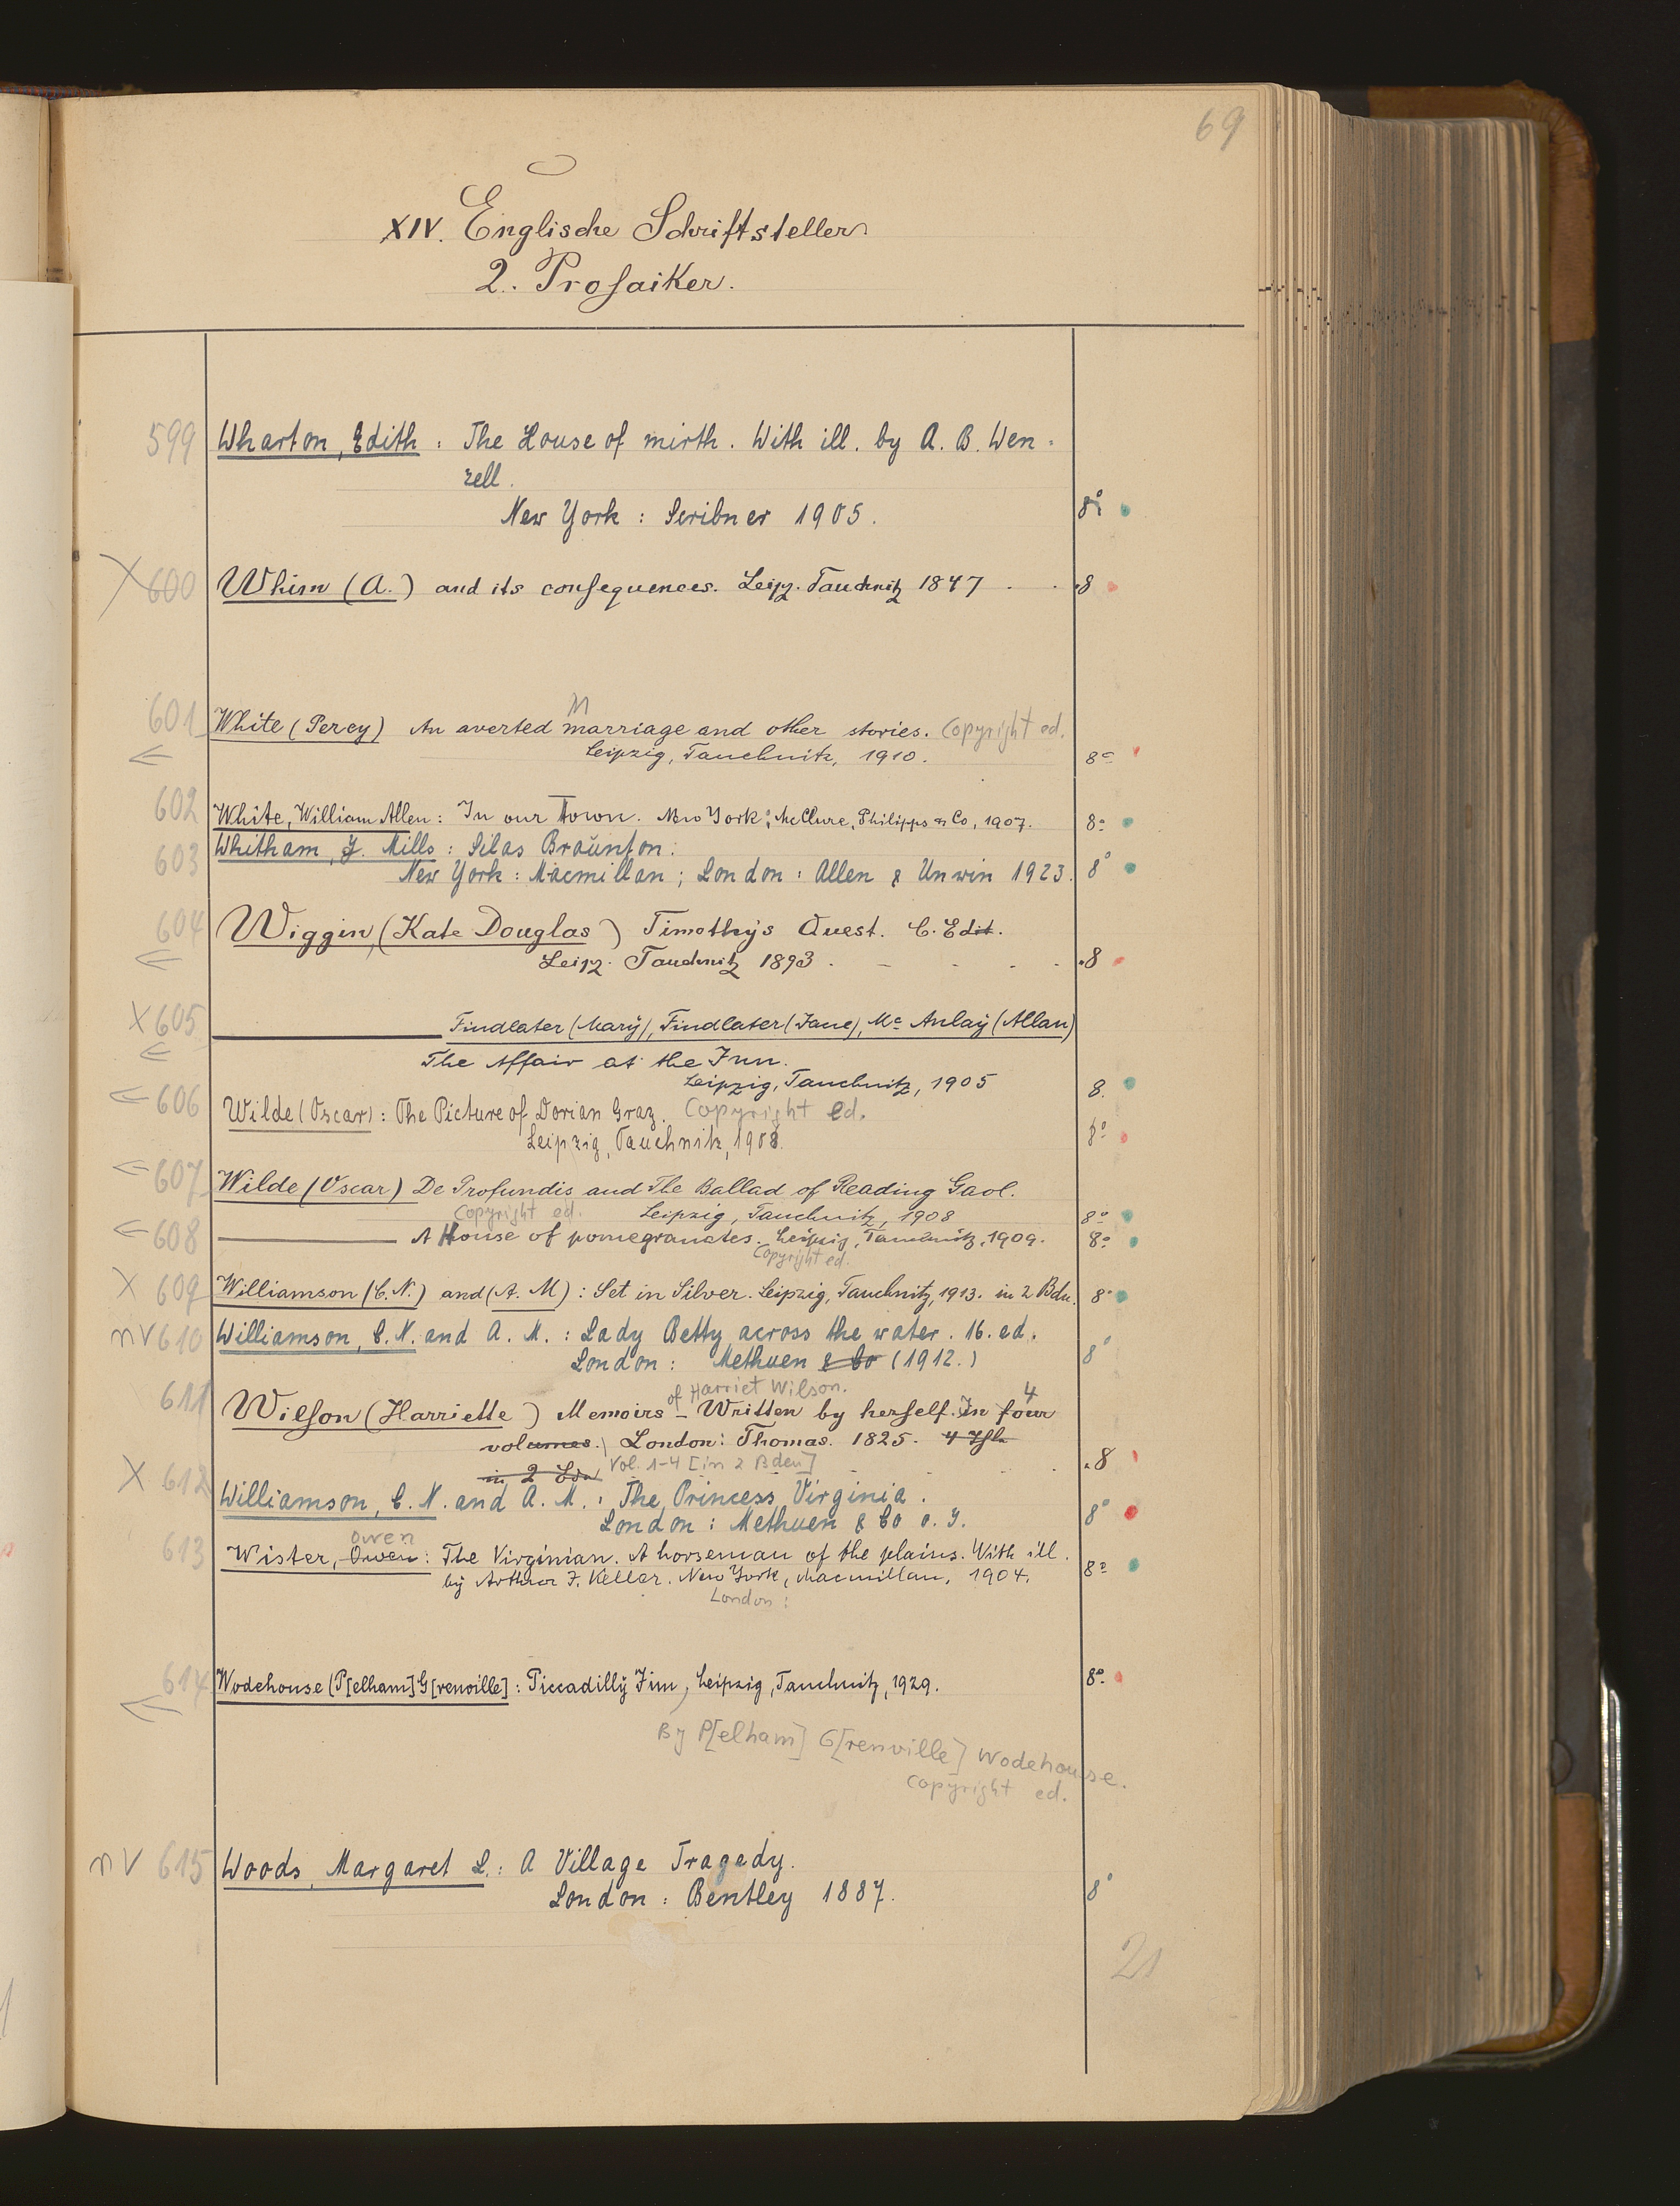 69
XIV. Englische Schriftsteller.
2. Prosaiker.
599 Wharton, Edith : The House of mirth. With ill. by A. B. Wen=
zell.
New York : Scribner 1905. 8°
X 600 Whim (A.) and its consequences. Leipz. Tauchnitz 1847 . . 8
M
601 White (Percy) An averted marriage and other stories. Copyright ed.
Leipzig, Tauchnitz, 1910. 8°
602 White, William Allen : In our Town. New York : McClure, Philipps & Co, 1907. 8°
603 Whitham, J. Mills : Silas Braunton.
New York : Macmillan ; London : Allen & Unwin 1923. 8°
604 Wiggin, (Kate Douglas) Timothys Quest. C. Edit.
Leipz. Tauchnitz 1893 . - - . . 8
X 605 Findlater (Mary), Findlater (Jane), Mc Aulay (Allan)
The Affair at the Inn.
Leipzig, Tauchnitz, 1905 8.
606 Wilde (Oscar) : The Picture of Dorian Gray. Copyright ed.
Leipzig, Tauchnitz, 1908. 8°
607 Wilde (Oscar) De Profundis and The Ballad of Reading Gaol.
Copyright ed. Leipzig, Tauchnitz, 1908 8°
608 A House of pomegranates. Leipzig, Tauchnitz, 1909. 8°
Copyright ed.
X 609 Williamson (C. N.) and (A. M) : Set in Silver. Leipzig, Tauchnitz, 1913. in 2 Bdn. 8°
nv 610 Williamson, C. N. and A. M. : Lady Betty across the water. 16. ed.
London : Methuen & Co (1912.) 8°
of Harriet Wilson. 4
611 Wilson (Harriette) Memoirs - Written by herself. In four
volumes. London : Thomas. 1825.
in 2 Bdn Vol. 1-4 [in 2 Bden] . 8
X 612 Williamson, C. N. and A. M. : The Princess Virginia.
London : Methuen & Co o. J. 8°
Owen
613 Wister, Owen : The Virginian. A horseman of the plains. With ill.
by Arthur I. Keller. New York, Macmillan, 1904. 8°
London :
614 Wodehouse (P[elham] G[renville] : Piccadilly Jim, Leipzig, Tauchnitz, 1929. 8°
By P[elham] G[renville] Wodehouse.
Copyright ed.
nv 615 Woods, Margaret L. : A Village Tragedy.
London : Bentley 1887. 8°
21